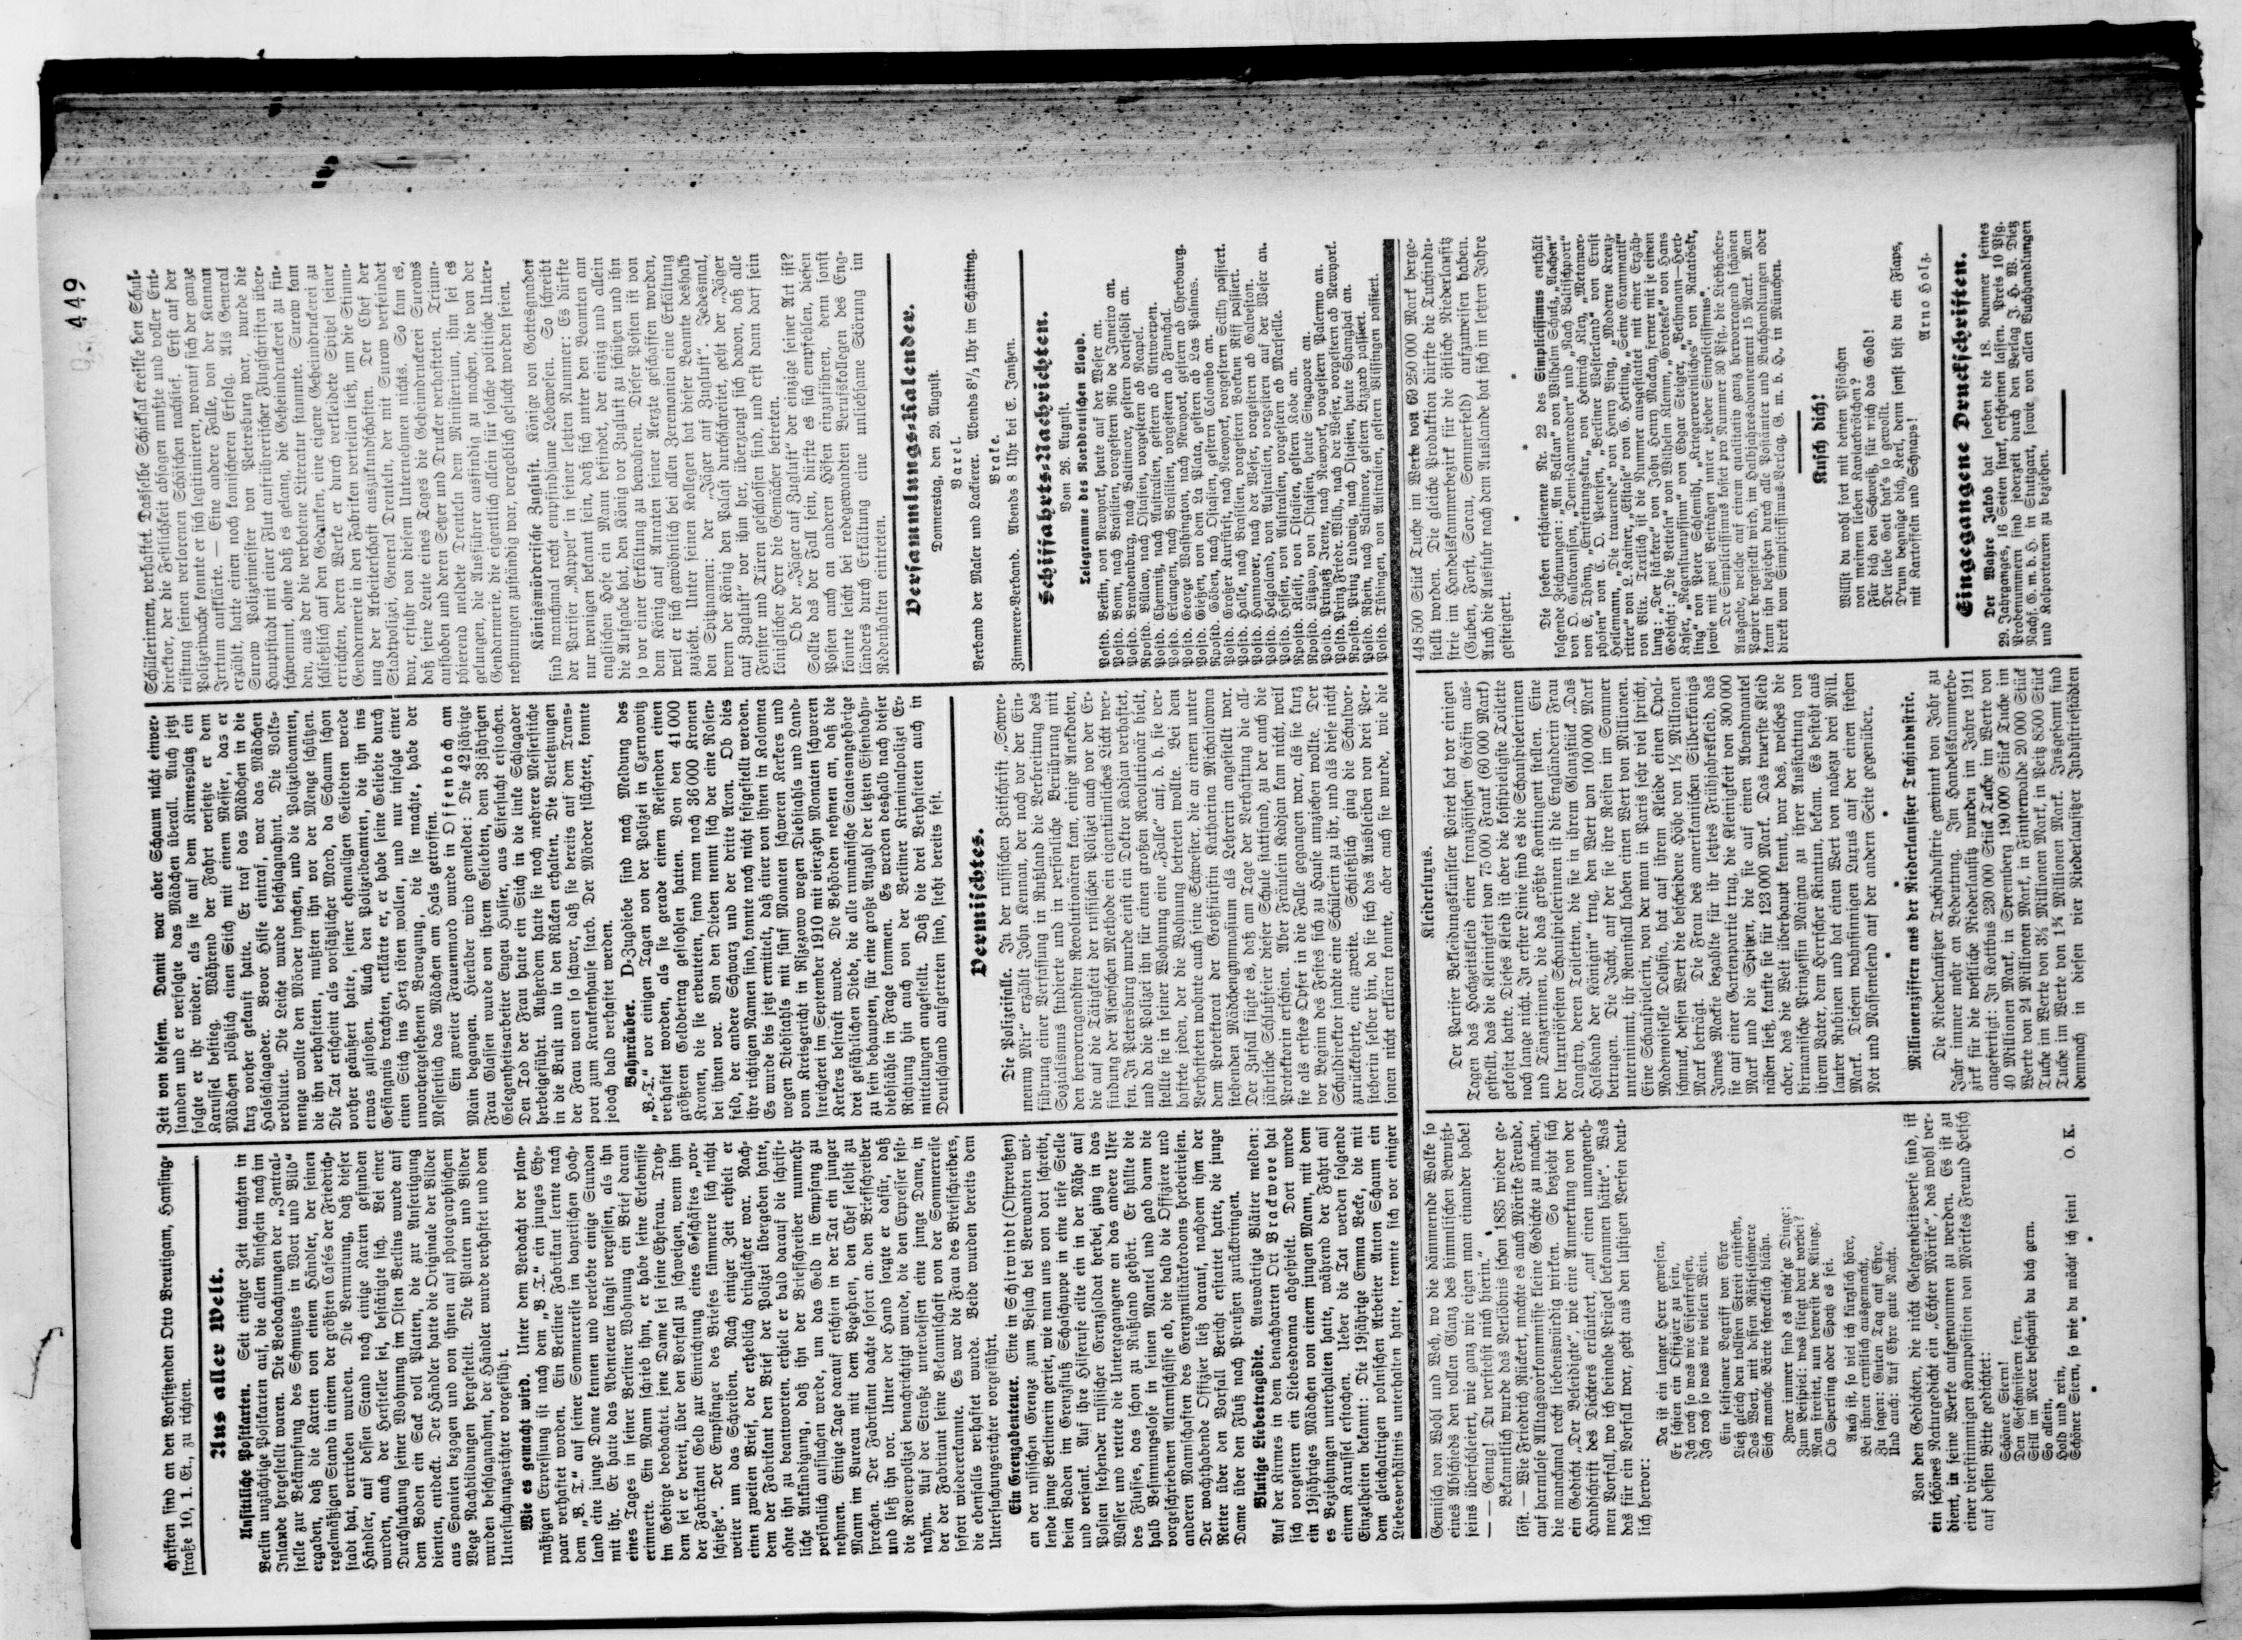 449
chriften sind an den Vorsitzenden Otto Breutigam, Hansing-
straße 10, 1. Et., zu richten.
Aus aller Welt.
Unsittliche Postkarten. Seit einiger Zeit tauchten in
Berlin unzüchtige Postkarten auf, die allen Anschein nach im
Inlande hergestellt waren. Die Beobachtungen der „Zentral-
stelle zur Bekämpfung des Schmutzes in Wort und Bild“
ergaben, daß die Karten von einem Händler, der seinen
regelmäßigen Stand in einem der größten Cafés der Friedrich-
stadt hat, vertrieben wurden. Die Vermutung, daß dieser
Händler, auf dessen Stand noch einige Karten gefunden
wurden, auch der Hersteller sei, bestätigte sich. Bei einer
Durchsuchung seiner Wohnung im Osten Berlins wurde auf
dem Boden ein Sack voll Platten, die zur Anfertigung
dienten, entdeckt. Der Händler hatte die Originale der Bilder
aus Spanien bezogen und von ihnen auf photographischem
Wege Nachbildungen hergestellt. Die Platten und Bilder
wurden beschlagnahmt, der Händler wurde verhaftet und dem
Untersuchungsrichter vorgeführt.
Wie es gemacht wird. Unter dem Verdacht der plan-
mäßigen Erpressung ist nach dem „B. T.“ ein junges Ehe-
paar verhaftet worden. Ein Berliner Fabrikant lernte nach
dem „B. T.“ auf seiner Sommerreise im bayerischen Hoch-
land eine junge Dame kennen und verlebte einige Stunden
mit ihr. Er hatte das Abenteuer längst vergessen, als ihn
eines Tages in seiner Berliner Wohnung ein Brief daran
erinnerte. Ein Mann schrieb ihm, er habe seine Erlebnisse
im Gebirge beobachtet, jene Dame sei seine Ehefrau. Trotz-
dem sei er bereit, über den Vorfall zu schweigen, wenn ihm
der Fabrikant Geld zur Einrichtung eines Geschäftes „vor-
schieße“. Der Empfänger des Briefes kümmerte sich nicht
weiter um das Schreiben. Nach einiger Zeit erhielt er
einen zweiten Brief, der erheblich dringlicher war. Nach-
dem der Fabrikant den Brief der Polizei übergeben hatte,
ohne ihn zu beantworten, erhielt er bald darauf die schrift-
liche Ankündigung, daß ihn der Briefschreiber nunmehr
persönlich aufsuchen werde, um das Geld in Empfang zu
nehmen. Einige Tage darauf erschien in der Tat ein junger
Mann im Bureau mit dem Begehren, den Chef selbst zu
sprechen. Der Fabrikant dachte sofort an den Briefschreiber
und ließ ihn vor. Unter der Hand sorgte er dafür, daß
die Revierpolizei benachrichtigt wurde, die den Erpresser fest-
nahm. Auf der Straße stand unterdessen eine junge Dame, in
der der Fabrikant seine Bekanntschaft von der Sommerreise
sofort wiedererkannte. Es war die Frau des Briefschreibers,
die ebenfalls verhaftet wurde. Beide wurden bereits dem
Untersuchungsrichter vorgeführt.
Ein Grenzabenteuer. Eine in Schirwindt (Ostpreußen)
an der russischen Grenze zum Besuch bei Verwandten wei-
lende junge Berlinerin geriet, wie man uns von dort schreibt,
beim Baden im Grenzfluß Schaschuppe in eine tiefe Stelle
und versank. Auf ihre Hilferufe eilte ein in der Nähe auf
Posten stehender russischer Grenzsoldat herbei, ging in das
Wasser und rettete die Untergegangene an das andere Ufer
des Flusses, das schon zu Rußland gehört. Er hüllte die
halb Besinnungslose in seinen Mantel und gab dann die
vorgeschriebenen Alarmschüsse ab, die bald die Offiziere und
anderen Mannschaften des Grenzmilitärkordons herbeiriefen.
Der wachthabende Offizier ließ darauf, nachdem ihm der
Retter über den Vorfall Bericht erstattet hatte, die junge
Dame über den Fluß nach Preußen zurückbringen.
Blutige Liebestragödie. Auswärtige Blätter melden:
Auf der Kirmes in dem benachbarten Ort Brackwede hat
sich vorgestern ein Liebesdrama abgespielt. Dort wurde
ein 19jähriges Mädchen von einem jungen Mann, mit dem
es Beziehungen unterhalten hatte, während der Fahrt auf
einem Karussel erstochen. Ueber die Tat werden folgende
Einzelheiten bekannt: Die 19jährige Emma Becke, die mit
dem gleichaltrigen polnischen Arbeiter Anton Schaum ein
Liebesverhältnis unterhalten hatte, trennte sich vor einiger
Zeit von diesem. Damit war aber Schaum nicht einver-
standen und er verfolgte das Mädchen überall. Auch jetzt
folgte er ihr wieder, als sie auf dem Kirmesplatz ein
Karussel bestieg. Während der Fahrt versetzte er dem
Mädchen plötzlich einen Stich mit einem Messer, das er
kurz vorher gekauft hatte. Er traf das Mädchen in die
Halsschlagader. Bevor Hilfe eintraf, war das Mädchen
verblutet. Die Leiche wurde beschlagnahmt. Die Volks-
menge wollte den Mörder lynchen, und die Polizeibeamten,
die ihn verhafteten, mußten ihn vor der Menge schützen.
Die Tat erscheint als vorsätzlicher Mord, da Schaum schon
vorher geäußert hatte, seiner ehemaligen Geliebten werde
etwas zustoßen. Auch den Polizeibeamten, die ihn ins
Gefängnis brachten, erklärte er, er habe seine Geliebte durch
einen Stich ins Herz töten wollen, und nur infolge einer
unvorhergesehenen Bewegung, die sie machte, habe der
Messerstich das Mädchen am Hals getroffen.
Ein zweiter Frauenmord wurde in Offenbach am
Main begangen. Hierüber wird gemeldet: Die 42 jährige
Frau Glassen wurde von ihrem Geliebten, dem 38 jährigen
Gelegenheitsarbeiter Eugen Husser, aus Eifersucht erstochen.
Den Tod der Frau hatte ein Stich in die linke Schlagader
herbeigeführt. Außerdem hatte sie noch mehrere Messerstiche
in die Brust und in den Rücken erhalten. Die Verletzungen
der Frau waren so schwer, daß sie bereits auf dem Trans-
port zum Krankenhause starb. Der Mörder flüchtete, konnte
jedoch bald verhaftet werden.
Bahnräuber. D-Zugdiebe sind nach Meldung des
„B.-T.“ vor einigen Tagen von der Polizei in Czernowitz
verhaftet worden, als sie gerade einem Reisenden einen
größeren Geldbetrag gestohlen hatten. Von den 41 000
Kronen, die sie erbeuteten, fand man noch 36 000 Kronen
bei ihnen vor. Von den Dieben nennt sich der eine Rosen-
feld, der andere Schwarz und der dritte Aron. Ob dies
ihre richtigen Namen sind, konnte noch nicht festgestellt werden.
Es wurde bis jetzt ermittelt, daß einer von ihnen in Kolomea
wegen Diebstahls mit fünf Monaten schweren Kerkers und
vom Kreisgericht in Rszezowo wegen Diebstahls und Land-
streicherei im September 1910 mit vierzehn Monaten schweren
Kerkers bestraft wurde. Die Behörden nehmen an, daß die
drei gefährlichen Diebe, die alle rumänische Staatsangehörige
zu sein behaupten, für eine große Anzahl der letzten Eisenbahn-
diebstähle in Frage kommen. Es werden deshalb nach dieser
Richtung hin auch von der Berliner Kriminalpolizei Er-
mittelungen angestellt. Daß die drei Verhafteten auch in
Deutschland aufgetreten sind, steht bereits fest.
Vermischtes.
Die Polizeifalle. In der russischen Zeitschrift „Sowre-
menny Mir“ erzählt John Kennan, der noch vor der Ein-
führung einer Verfassung in Rußland die Verbreitung des
Sozialismus studierte und in persönliche Berührung mit
den hervorragendsten Revolutionären kam, einige Anekdoten,
die auf die Tätigkeit der russischen Polizei auch vor der Er-
findung der Asewschen Methode ein eigentümliches Licht wer-
fen. In Petersburg wurde einst ein Doktor Kadjan verhaftet,
und da die Polizei ihn für einen großen Revolutionär hielt,
stellte sie in seiner Wohnung eine „Falle“ auf, d. h. sie ver-
haftete jeden, der die Wohnung betreten wollte. Bei dem
Verhafteten wohnte auch seine Schwester, die an einem unter
dem Protektorat der Großfürstin Katharina Michailowna
stehenden Mädchengymnasium als Lehrerin angestellt war.
Der Zufall fügte es, daß am Tage der Verhaftung die all-
jährliche Schlußfeier dieser Schule stattfand, zu der auch die
Protektorin erschien. Aber Fräulein Kadjan kam nicht, weil
sie als erstes Opfer in die Falle gegangen war, als sie kurz
vor Beginn des Festes sich zu Hause umziehen wollte. Der
Schuldirektor sandte eine Schülerin zu ihr, und als diese nicht
zurückkehrte, eine zweite. Schließlich ging die Schulvor-
steherin selber hin, da sie sich das Ausbleiben von drei Per-
sonen nicht erklären konnte, aber auch sie wurde, wie die
Schülerinnen, verhaftet. Dasselbe Schicksal ereilte den Schul-
direktor, der die Festlichkeit absagen mußte und voller Ent-
rüstung seinen verlorenen Schäfchen nachlief. Erst auf der
Polizeiwache konnte er sich legitimieren, worauf sich der ganze
Irrtum aufklärte. — Eine andere Falle, von der Kennan
erzählt, hatte einen noch komischeren Erfolg. Als General
Surow Polizeimeister von Petersburg war, wurde die
Hauptstadt mit einer Flut aufrührerischer Flugschriften über-
schwemmt, ohne daß es gelang, die Geheimdruckerei zu fin-
den, aus der die verbotene Literatur stammte. Surow kam
schließlich auf den Gedanken, eine eigene Geheimdruckerei zu
errichten, deren Werke er durch verkleidete Spitzel seiner
Gendarmerie in den Fabriken verteilen ließ, um die Stimm-
ung der Arbeiterschaft auszukundschaften. Der Chef der
Stadtpolizei, General Drenteln, der mit Surow verfeindet
war, erfuhr von diesem Unternehmen nichts. So kam es,
daß seine Leute eines Tages die Geheimdruckerei Surows
aufhoben und deren Setzer und Drucker verhafteten. Trium-
phierend meldete Drenteln dem Ministerium, ihm sei es
gelungen, die Aufrührer ausfindig zu machen, die von der
Gendarmerie, die eigentlich allein für solche politische Unter-
nehmungen zuständig war, vergeblich gesucht worden seien.
Königsmörderische Zugluft. Könige von Gottesgnaden
sind manchmal recht empfindsame Lebewesen. So schreibt
der Pariser „Rappel“ in seiner letzten Nummer: Es dürfte
nur wenigen bekannt sein, daß sich unter den Beamten am
englischen Hofe ein Mann befindet, der einzig und allein
die Aufgabe hat, den König vor Zugluft zu schützen und ihn
so vor einer Erkältung zu bewahren. Dieser Posten ist von
dem König auf Anraten seiner Aerzte geschaffen worden,
weil er sich gewöhnlich bei allen Zeremonien eine Erkältung
zuzieht. Unter seinen Kollegen hat dieser Beamte deshalb
den Spitznamen: der „Jäger auf Zugluft“. Jedesmal,
wenn der König den Palast durchschreitet, geht der „Jäger
auf Zugluft“ vor ihm her, überzeugt sich davon, daß alle
Fenster und Türen geschlossen sind, und erst dann darf sein
königlicher Herr die Gemächer betreten.
Ob der „Jäger auf Zugluft“ der einzige seiner Art ist?
Sollte das der Fall sein, dürfte es sich empfehlen, diesen
Posten auch an anderen Höfen einzuführen, denn sonst
könnte leicht bei redegewandten Berufskollegen des Eng-
länders durch Erkältung eine unliebsame Störung im
Redenhalten eintreten.
Versammlungs-Kalender.
Donnerstag, den 29. August.
Varel.
Verband der Maler und Lackierer. Abends 8½ Uhr im Schütting.
Brake.
Zimmerer-Verband. Abends 8 Uhr bei E. Janßen.
Schiffahrts-Nachrichten.
Vom 26. August.
Telegramme des Norddeutschen Lloyd.
Postd. Berlin, von Newyork, heute auf der Weser an.
Postd. Bonn, nach Brasilien, vorgestern Rio de Janeiro an.
Postd. Brandenburg, nach Baltimore, gestern dortselbst an.
Rpostd. Bülow, nach Ostasien, gestern ab Neapel.
Postd. Chemnitz, nach Australien, gestern ab Antwerpen.
Postd. Erlangen, nach Brasilien, vorgestern ab Funchal.
Postd. George Washington, nach Newyork, gestern ab Cherbourg.
Postd. Gießen, von dem La Plata, gestern ab Las Palmas.
Rpostd. Göben, nach Ostasien, gestern Colombo an.
Postd. Großer Kurfürst, nach Newyork, vorgestern Scilly passiert.
Postd. Halle, nach Brasilien, vorgestern Borkum Riff passiert.
Postd. Hannover, nach der Weser, vorgestern ab Galveston.
Postd. Helgoland, von Australien, vorgestern auf der Weser an.
Postd. Hessen, von Australien, vorgestern ab Marseille.
Rpostd. Kleist, von Ostasien, gestern Kobe an.
Rpostd. Lützow, von Ostasien, heute Singapore an.
Postd. Prinzeß Irene, nach Newyork, vorgestern Palermo an.
Postd. Prinz Friedr. Wilh., nach der Weser, vorgestern ab Newyork.
Rpostd. Prinz Ludwig, nach Ostasien, heute Shanghai an.
Postd. Rhein, nach Baltimore, gestern Lizzard passiert.
Postd. Tübingen, von Australien, gestern Vlissingen passiert.
Gemisch von Wohl und Weh, wo die dämmernde Wolke so
eines Abschieds den vollen Glanz des himmlischen Bewußt-
seins überschleiert, wie ganz wie eigen man einander habe!
— — Genug! Du verstehst mich hierin.“
Bekanntlich wurde das Verlöbnis schon 1835 wieder ge-
löst. — Wie Friedrich Rückert, machte es auch Mörike Freude,
auf harmlose Alltagsvorkommnisse kleine Gedichte zu machen,
die manchmal recht liebenswürdig wirken. So bezieht sich
ein Gedicht „Der Beleidigte“, wie eine Anmerkung von der
Handschrift des Dichters erläutert, „auf einen unangeneh-
men Vorfall, wo ich beinahe Prügel bekommen hätte“. Was
das für ein Vorfall war, geht aus den lustigen Versen deut-
lich hervor:
Da ist ein langer Herr gewesen,
Er schien ein Offizier zu sein,
Ich roch so was wie Eisenfressen,
Ich roch so was wie vielen Wein.
Ein seltsamer Begriff von Ehre
Ließ gleich den tollsten Streit entstehn,
Das Wort, mit dessen Rätselschwere
Sich manche Bärte schrecklich blähn.
Zwar immer sind es wicht'ge Dinge;
Zum Beispiel: was fliegt dort vorbei?
Man streitet, man beweist die Klinge,
Ob Sperling oder Spatz es sei.
Auch ist, so viel ich kürzlich höre,
Bei ihnen ernstlich ausgemacht,
Zu sagen: Guten Tag auf Ehre,
Und auch: Auf Ehre gute Nacht.
Von den Gedichten, die nicht Gelegenheitsverse sind, ist
ein schönes Naturgedicht ein „Echter Mörike“, das wohl ver-
dient, in seine Werke aufgenommen zu werden. Es ist zu
einer vierstimmigen Komposition von Mörikes Freund Hetsch
auf dessen Bitte gedichtet:
Schöner Stern!
Den Geschwistern fern,
Still im Meer beschaust du dich gern.
So allein,
Hold und rein,
Schöner Stern, so wie du möcht' ich sein!
O. K.
Kleiderluxus.
Der Pariser Bekleidungskünstler Poiret hat vor einigen
Tagen das Hochzeitskleid einer französischen Gräfin aus-
gestellt, das die Kleinigkeit von 75 000 Frank (60 000 Mark)
gekostet hatte. Dieses Kleid ist aber die kostspieligste Toilette
noch lange nicht. In erster Linie sind es die Schauspielerinnen
und Tänzerinnen, die das größte Kontingent stellen. Eine
der luxuriösesten Schauspielerinnen ist die Engländerin Frau
Langtry, deren Toiletten, die sie in ihrem Glanzstück „Das
Halsband der Königin“ trug, den Wert von 100 000 Mark
betrugen. Die Jacht, auf der sie ihre Reisen im Sommer
unternimmt, ihr Rennstall haben einen Wert von Millionen.
Eine Schauspielerin, von der man in Paris sehr viel spricht,
Mademoiselle Delysia, hat auf ihrem Kleide einen Opal-
schmuck, dessen Wert die bescheidene Höhe von 1½ Millionen
Mark beträgt. Die Frau des amerikanischen Silberkönigs
James Mackie bezahlte für ihr letztes Frühjahrskleid, das
sie auf einer Gartenpartie trug, die Kleinigkeit von 300 000
Mark und die Spitzen, die sie auf einen Abendmantel
nähen ließ, kaufte sie für 123 000 Mark. Das teuerste Kleid
aber, das die Welt überhaupt kennt, war das, welches die
birmanische Prinzessin Maigna zu ihrer Ausstattung von
ihrem Vater, dem Herrscher Kiantun, bekam. Es besteht aus
lauter Rubinen und hat einen Wert von nahezu drei Mill.
Mark. Diesem wahnsinnigen Luxus auf der einen stehen
Not und Massenelend auf der andern Seite gegenüber.
Millionenziffern aus der Niederlausitzer Tuchindustrie.
Die Niederlausitzer Tuchindustrie gewinnt von Jahr zu
Jahr immer mehr an Bedeutung. Im Handelskammerbe-
zirk für die westliche Niederlausitz wurden im Jahre 1911
angefertigt: In Kottbus 230 000 Stück Tuche im Werte von
40 Millionen Mark, in Spremberg 190 000 Stück Tuche im
Werte von 24 Millionen Mark, in Finsterwalde 20 000 Stück
Tuche im Werte von 3½ Millionen Mark, in Peitz 8500 Stück
Tuche im Werte von 1¾ Millionen Mark. Insgesamt sind
demnach in diesen vier Niederlausitzer Industriestädten
448 500 Stück Tuche im Werte von 69 250 000 Mark herge-
stellt worden. Die gleiche Produktion dürfte die Tuchindu-
strie im Handelskammerbezirk für die östliche Niederlausitz
(Guben, Forst, Sorau, Sommerfeld) aufzuweisen haben.
Auch die Ausfuhr nach dem Auslande hat sich im letzten Jahre
gesteigert.
Die soeben erschienene Nr. 22 des Simplicissimus enthält
folgende Zeichnungen: „Am Balkan“ von Wilhelm Schulz, „Aachen“
von O. Gulbransson, „Demi-Kameraden“ und „Nach Baltischport“
von E. Thöny, „Entfettungskur“ von Heinrich Kley, „Metamor-
phosen“ von C. O. Petersen, „Berliner Westerland“ von Ernst
Heilemann, „Die Trauernde“ von Henry Bing, „Moderne Kreuz-
ritter“ von L. Kainer, „Ekstase“ von G. Hetting, „Seine Grammatik“
von Blix. Textlich ist die Nummer ausgestattet mit einer Erzäh-
lung: „Der Stärkere“ von John Henry Mackay, ferner mit je einem
Gedicht: „Die Vetteln“ von Wilhelm Klemm, „Groteske“ von Hans
Kaser, „Regenstumpfsinn“ von Edgar Steiger, „Bethmann—Hert-
ling“ von Peter Schlemihl, „Kriegervereinliches“ von Ratatöskr,
sowie mit zwei Beiträgen unter „Lieber Simplicissimus“.
Der Simplicissimus kostet pro Nummer 30 Pfg., die Liebhaber-
Ausgabe, welche auf einem qualitativ ganz hervorragend schönen
Papier hergestellt wird, im Halbjahresabonnement 15 Mark. Man
kann ihn beziehen durch alle Postämter und Buchhandlungen oder
direkt vom Simplicissimus-Verlag, G. m. b. H., in München.
Kusch dich!
Willst du wohl fort mit deinen Pfötchen
von meinem lieben Kaviarbrötchen?
Für dich den Schweiß, für mich das Gold!
Der liebe Gott hat's so gewollt.
D'rum begnüge dich, Kerl, denn sonst bist du ein Flaps,
mit Kartoffeln und Schnaps!
Arno Holz.
Eingegangene Druckschriften.
Der Wahre Jakob hat soeben die 18. Nummer seines
29. Jahrganges, 16 Seiten stark, erscheinen lassen. Preis 10 Pfg.
Probenummern sind jederzeit durch den Verlag J. H. W. Dietz
Nachf. G. m. b. H. in Stuttgart, sowie von allen Buchhandlungen
und Kolporteuren zu beziehen.